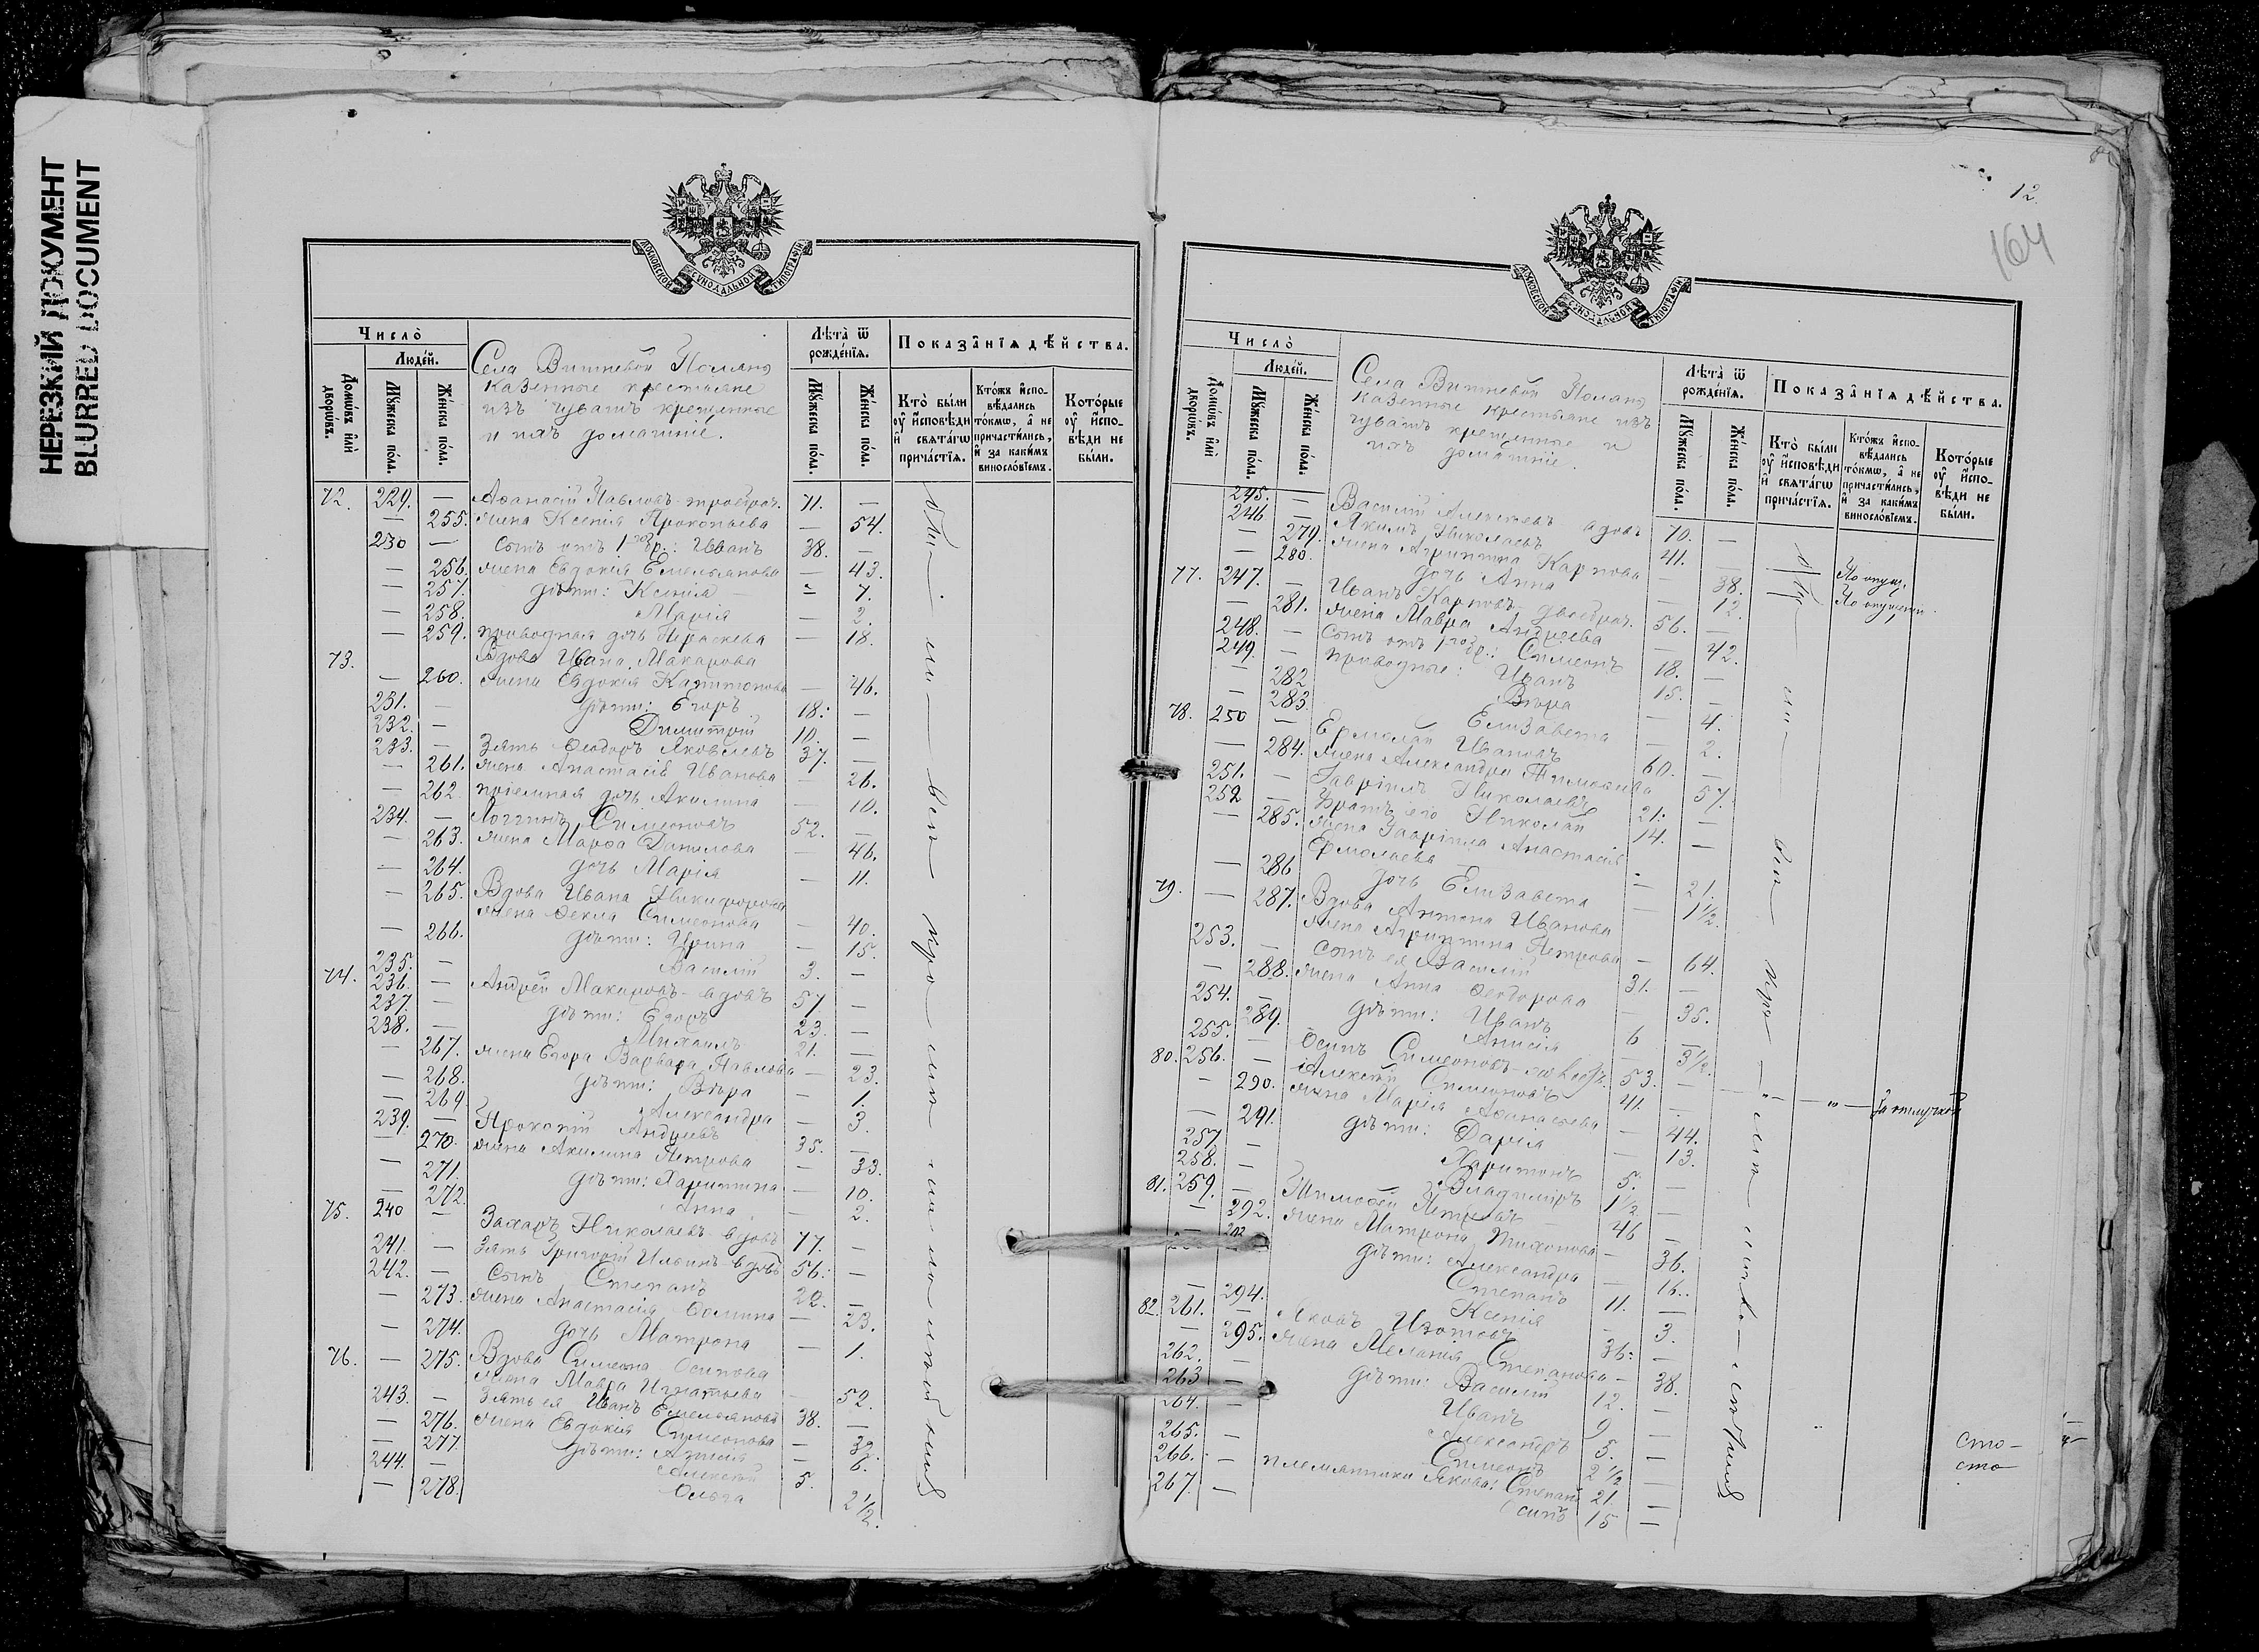 НЕРЕЗКИЙ ДОКУМЕНТ
BLURRED DOCUMENT
МОСКОВСКОЙ СѴНОДАЛЬНОЙ ТИПОГРАФІИ
Число̀
Люде́й.
Домѡ́въ и҆лѝ дворѡ́въ.
Мꙋ́жеска по́ла.
Же́нска по́ла.
Села Вишневой Поляны
казенные крестьяне
изъ чувашъ крещенные
и ихъ домашніе.
Лѣ́та ѿ рожде́нїѧ.
Мꙋ́жеска по́ла.
Же́нска по́ла.
Показа̑нїѧ дѣ́йства.
Кто̀ бы́ли ᲂу҆ и҆сповѣ́ди и҆ свѧта́гѡ прича́стїѧ.
Кто́жъ и҆спо-
вѣ́дались
то́кмѡ, а҆ не
причасти́лись,
и҆ за каки́мъ
винослѡ́вїемъ.
Кото́рые ᲂу҆ и҆спо-
вѣ́ди не
бы́ли.
72. 229. — Аѳанасій Павловъ 71. —
— 255. жена Ксенія Прокопьева — 54.
230 — сынъ отъ 1го бр.: Иванъ 38. —
— 256. жена Евдокія Емельянова — 43.
— 257. дѣти: Ксенія — 7.
— 258. Марія — 2.
— 259. приводная дочь Параскева — 18.
73. Вдова Ивана Макарова
— 260. жена Евдокія Капитонова — 46.
231. — дѣти: Егоръ 18. —
232. — Димитрій 10. —
233. — Зять Ѳеодоръ Яковлевъ 37. —
— 261. жена Анастасія Иванова — 26.
— 262. пріемная дочь Акилина — 10.
234. — Логгинъ Симеоновъ 52. —
— 263. жена Марѳа Данилова — 46.
— 264. дочь Марія — 11.
— 265. Вдова Ивана Никифорова
жена Ѳекла Симеонова — 40.
— 266. дѣти: Ирина — 15.
235. — Василій 3. —
74. 236. — Андрей Макаровъ - вдовъ 57 —
237. — дѣти: Егоръ 23. —
238. — Михаилъ 21. —
— 267. жена Егора Варвара Павлова — 23.
— 268. дѣти: Вѣра — 1.
— 269. Александра — 3.
239. — Прокопій Андреевъ 35. —
— 270. жена Акилина Петрова — 33.
— 271. дѣти: Харитина — 10.
— 272. Анна — 2.
75. 240 — Захаръ Николаевъ - вдовъ 77. —
241. — Зять Григорій Ильинъ - вдовъ 56. —
242. — сынъ Степанъ 22. —
— 273. жена Анастасія Ѳомина — 23.
— 274. дочь Матрона — 1.
76. — 275. Вдова Симеона Осипова
жена Мавра Игнатьева — 52.
243. — Зять ея Иванъ Емельяновъ 38. —
— 276. жена Евдокія Симеонова — 32.
— 277. дѣти: — 6.
244. — Алексѣй 5.
— 278. Ольга 2½.
12.
164
МОСКОВСКОЙ СѴНОДАЛЬНОЙ ТИПОГРАФІИ
Число̀
Люде́й.
Домѡ́въ и҆лѝ дворѡ́въ.
Мꙋ́жеска по́ла.
Же́нска по́ла.
Села Вишневой Поляны
казенные крестьяне изъ
чувашъ крещенные и
ихъ домашніе.
Лѣ́та ѿ рожде́нїѧ.
Мꙋ́жеска по́ла.
Же́нска по́ла.
Показа̑нїѧ дѣ́йства.
Кто̀ бы́ли ᲂу҆ и҆сповѣ́ди и҆ свѧта́гѡ прича́стїѧ.
Кто́жъ и҆спо-
вѣ́дались
то́кмѡ, а҆ не
причасти́лись,
и҆ за каки́мъ
винослѡ́вїемъ.
Кото́рые ᲂу҆ и҆спо-
вѣ́ди не
бы́ли.
245. — Василій Алексѣевъ вдовъ 70. —
246 — Якимъ Николаевъ 41. —
— 279. жена Агрипина Карпова — 38.
— 280. дочь Анна — 12.
77. 247. — Иванъ Карповъ 56. —
— 281. жена Мавра Андреева — 42.
248. — сынъ отъ 1го бр.: Симеонъ 18. —
249. — приводные: Иванъ 15. —
— 282 Вѣра — 4.
— 283. Елизавета — 2.
78. 250 — Ермолай Ивановъ 60. —
— 284. жена Александра — 57.
251. — Гавріилъ Николаевъ 21. —
252 — Братъ его Николай 14. —
— 285. жена Гавріила Анастасія
Ермолаева — 21.
— 286 дочь Елизавета — 1½.
79. — 287. Вдова Антона Иванова
жена Агрипина Петрова — 64.
253. — сынъ ея Василій 31. —
— 288. жена Анна Ѳеодорова — 35.
254. — дѣти: Иванъ 6 —
289. Анисія — 3½.
255. — Осипъ Симеоновъ 53. —
80. 256. — Алексѣй Симеоновъ 41. —
— 290. жена Марія Аѳанасьева — 44.
— 291. дѣти: Дарія — 13.
257 — Харитонъ 5. —
258. — Владиміръ 1½ —
81. 259. — Тимоѳей Петровъ 46 —
— 292. жена Матрона Тихонова — 36.
дѣти: Александра — 16.
Степанъ 11. —
— 294. Ксенія — 3.
82. 261. — Яковъ Изотовъ 36. —
— 295. жена Меланія Степанова — 38.
262. — дѣти: Василій 12. —
263 — Иванъ 9 —
264. — Александръ 5. —
265. — Симеонъ 2½ —
266. — племянники Якова: Степанъ 21. —
267. — Осипъ 15 —
По опущ.
По опущенію
За отлучкою
сто-
сто